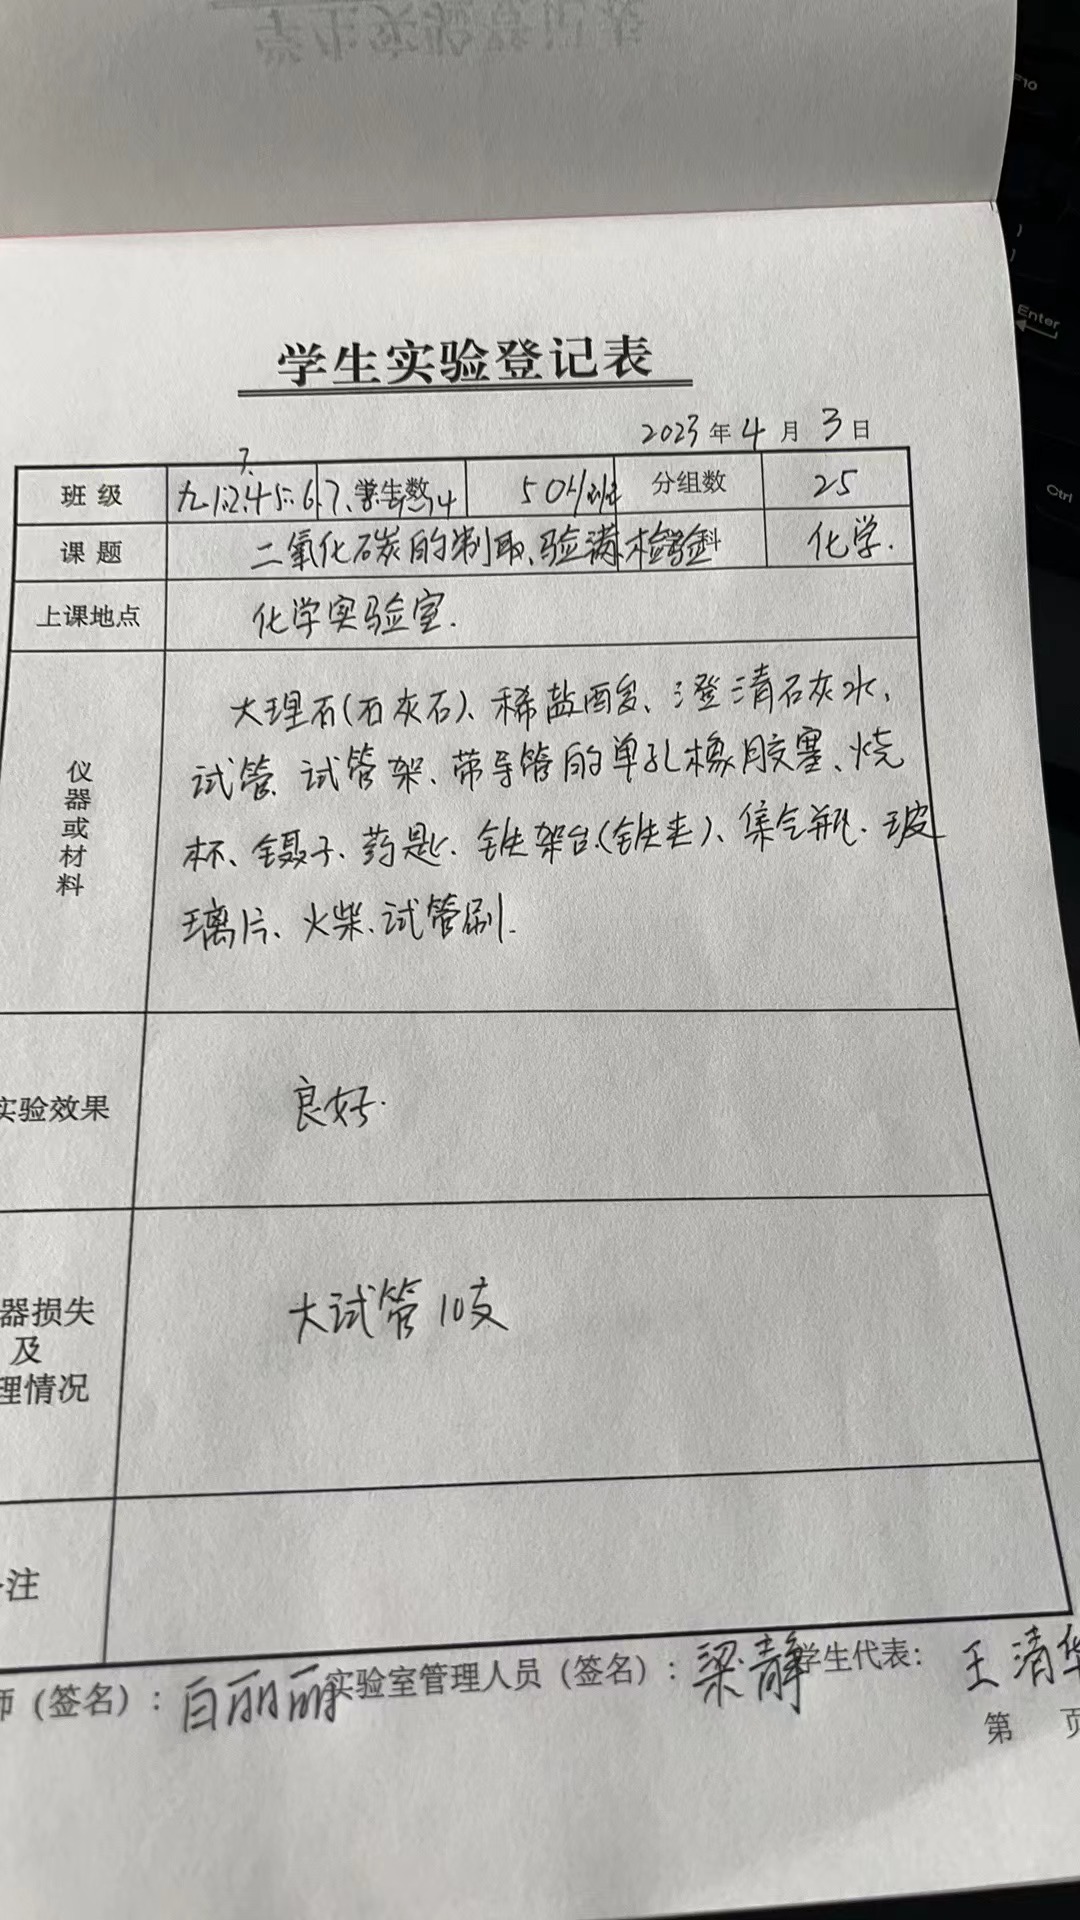 学生实验登记表
2023年4月3日
7.
班级 九.1.2.4.5.6.7. 学生数 50人/班 分组数 25
课题 二氧化碳的制取、验满、检验 科 化学.
上课地点 化学实验室.
仪器或材料
大理石(石灰石)、稀盐酸、澄清石灰水、
试管、试管架、带导管的单孔橡胶塞、烧
杯、镊子、药匙、铁架台(铁夹)、集气瓶、玻
璃片、火柴、试管刷.
实验效果 良好.
器损失
及
理情况
大试管10支
注
师(签名):白丽丽 实验室管理人员(签名):梁静 学生代表:王清华
第 页